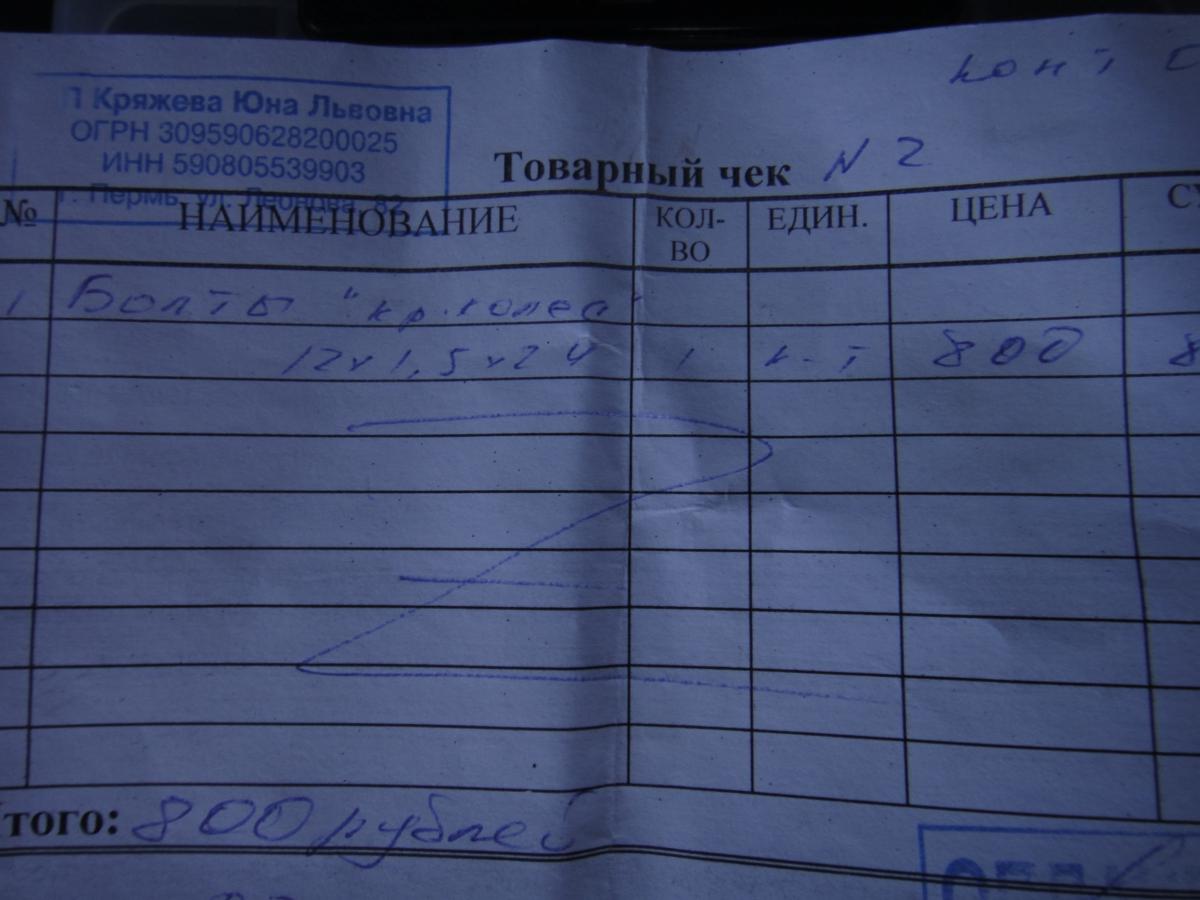 П Кряжева Юна Львовна
ОГРН 309590628200025
ИНН 590805539903
г. Пермь, ул. Леонова, 82
Товарный чек N 2
№ НАИМЕНОВАНИЕ КОЛ-ВО ЕДИН. ЦЕНА
1 Болты "кр. колеса"
12х1,5х24 1 к-т 800 8
Итого: 800 рублей